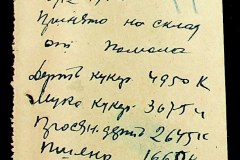 Принято на склад
от помола
Дерть кукур. 4950 к
Мука кукур. 3675 к
Просян. дерть 2645 к
Пшено 166